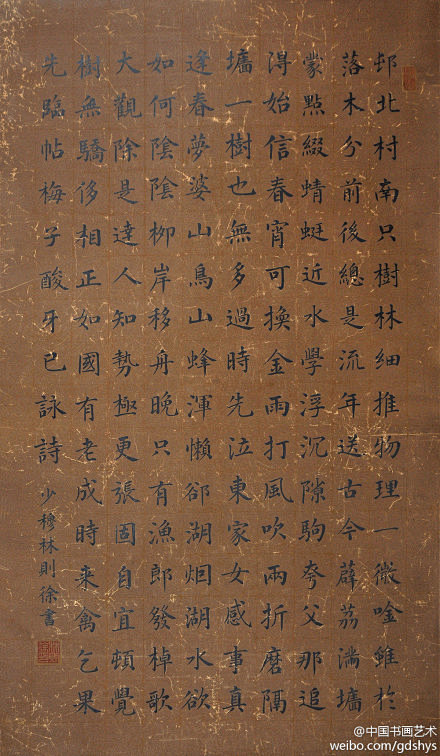 邨北村南只樹林細推物理一微唫鯹於
落木分前後總是流年送古今薜荔滿墻
蒙點綴蜻蜓近水學浮沉隙駒夸父那追
得始信春宵可換金雨打風吹兩折磨隔
壚一樹也無多過時先泣東家女感事真
逢春夢婆山鳥山蜂渾懶郤湖烟湖水欲
如何陰陰柳岸移舟晚只有漁郎發棹歌
大觀除是達人知勢極更張固自宜頓覺
樹無驕侈相正如國有老成時来禽乞果
先臨帖梅子酸牙已詠詩
少穆林則徐書
@中国书画艺术
weibo.com/gdshys